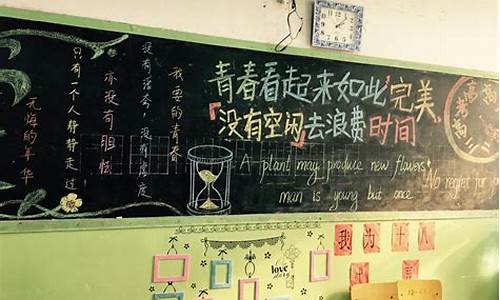 我要的青春
没有落安，没有厚度
亦没有胆怯
只有一个人静静走过
无悔的年华
青春看起来如此"完美"
「没有空闲」去浪费时间
A plant may produce new flowers
man is young but once
No regret for
高考
love
我为十八